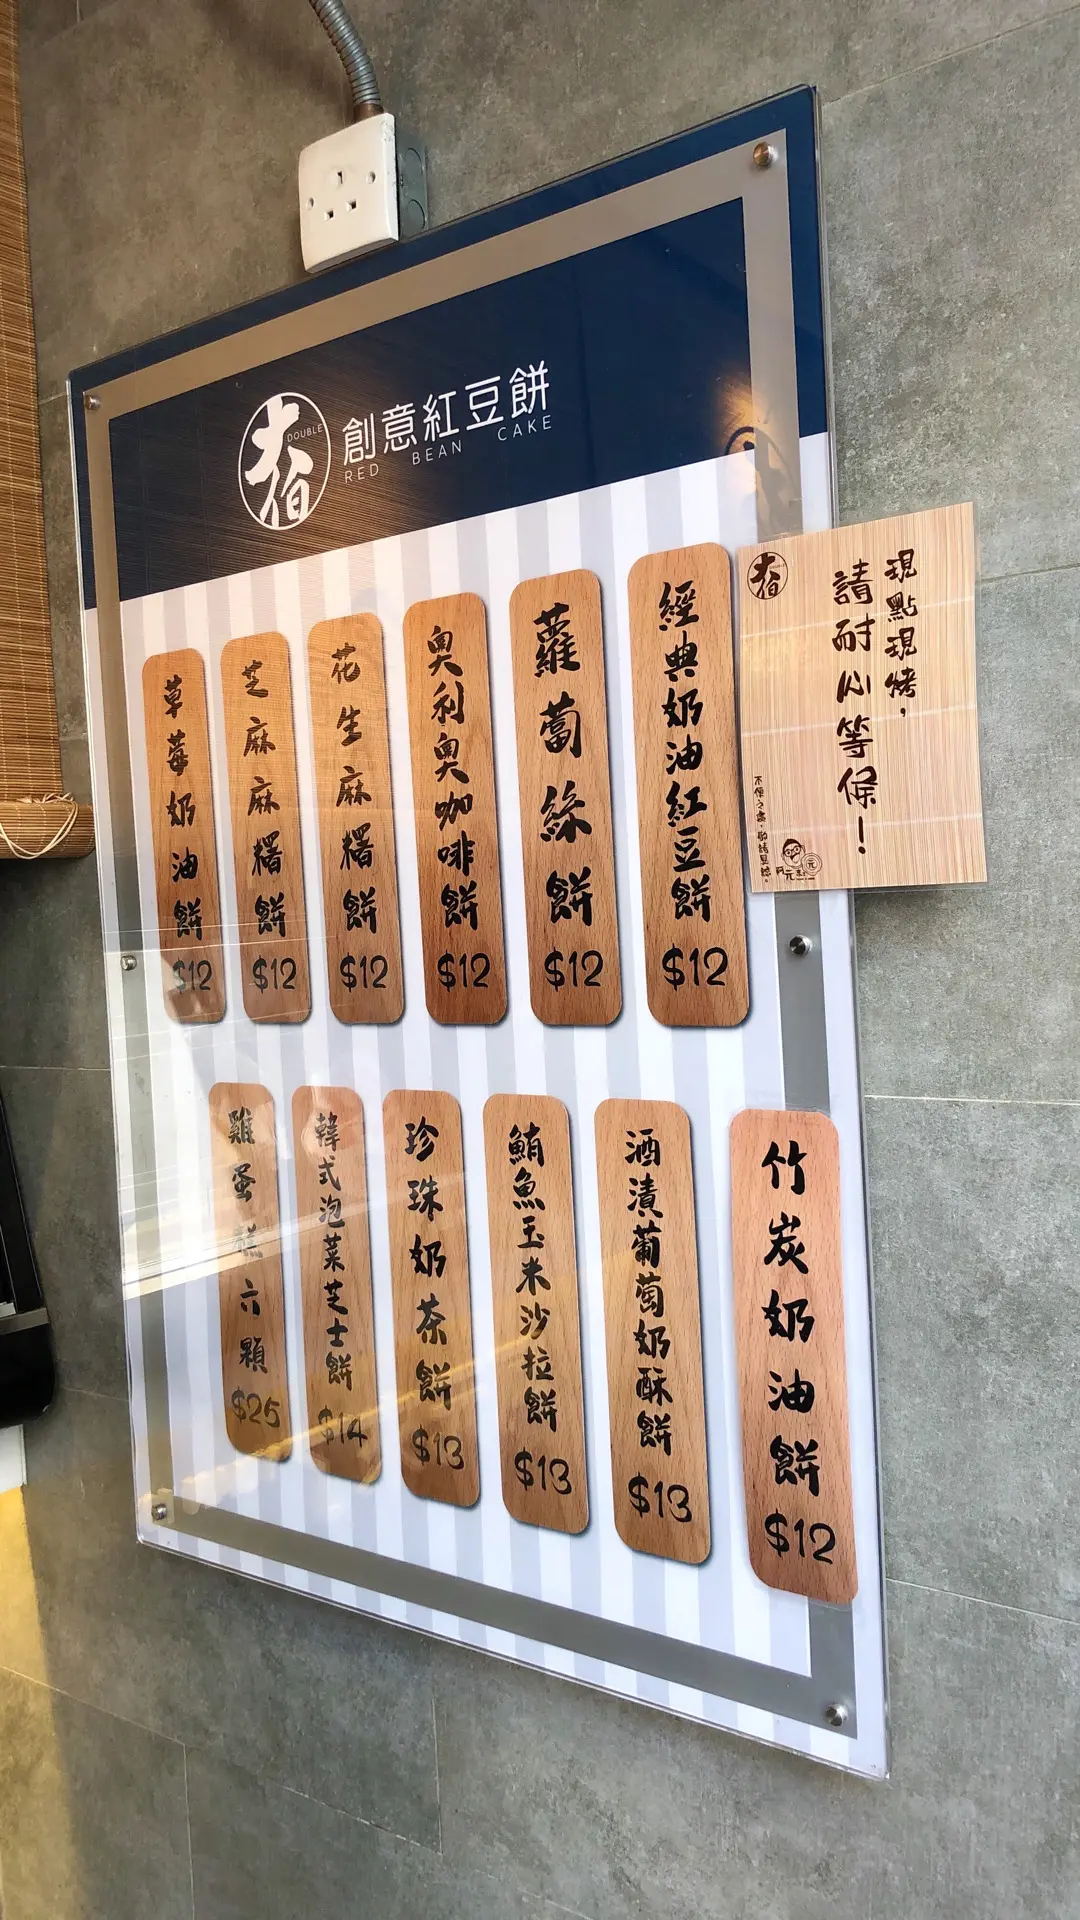 DOUBLE
創意紅豆餅
RED BEAN CAKE
經典奶油紅豆餅 $12
蘿蔔絲餅 $12
奧利奧咖啡餅 $12
花生麻糬餅 $12
芝麻麻糬餅 $12
草莓奶油餅 $12
竹炭奶油餅 $12
酒漬葡萄奶酥餅 $13
鮪魚玉米沙拉餅 $13
珍珠奶茶餅 $13
韓式泡菜芝士餅 $14
雞蛋糕六顆 $25
現點現烤，
請耐心等候！
不便之處，敬請見諒。